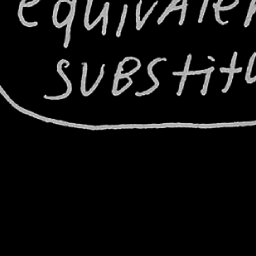 equivale
substit